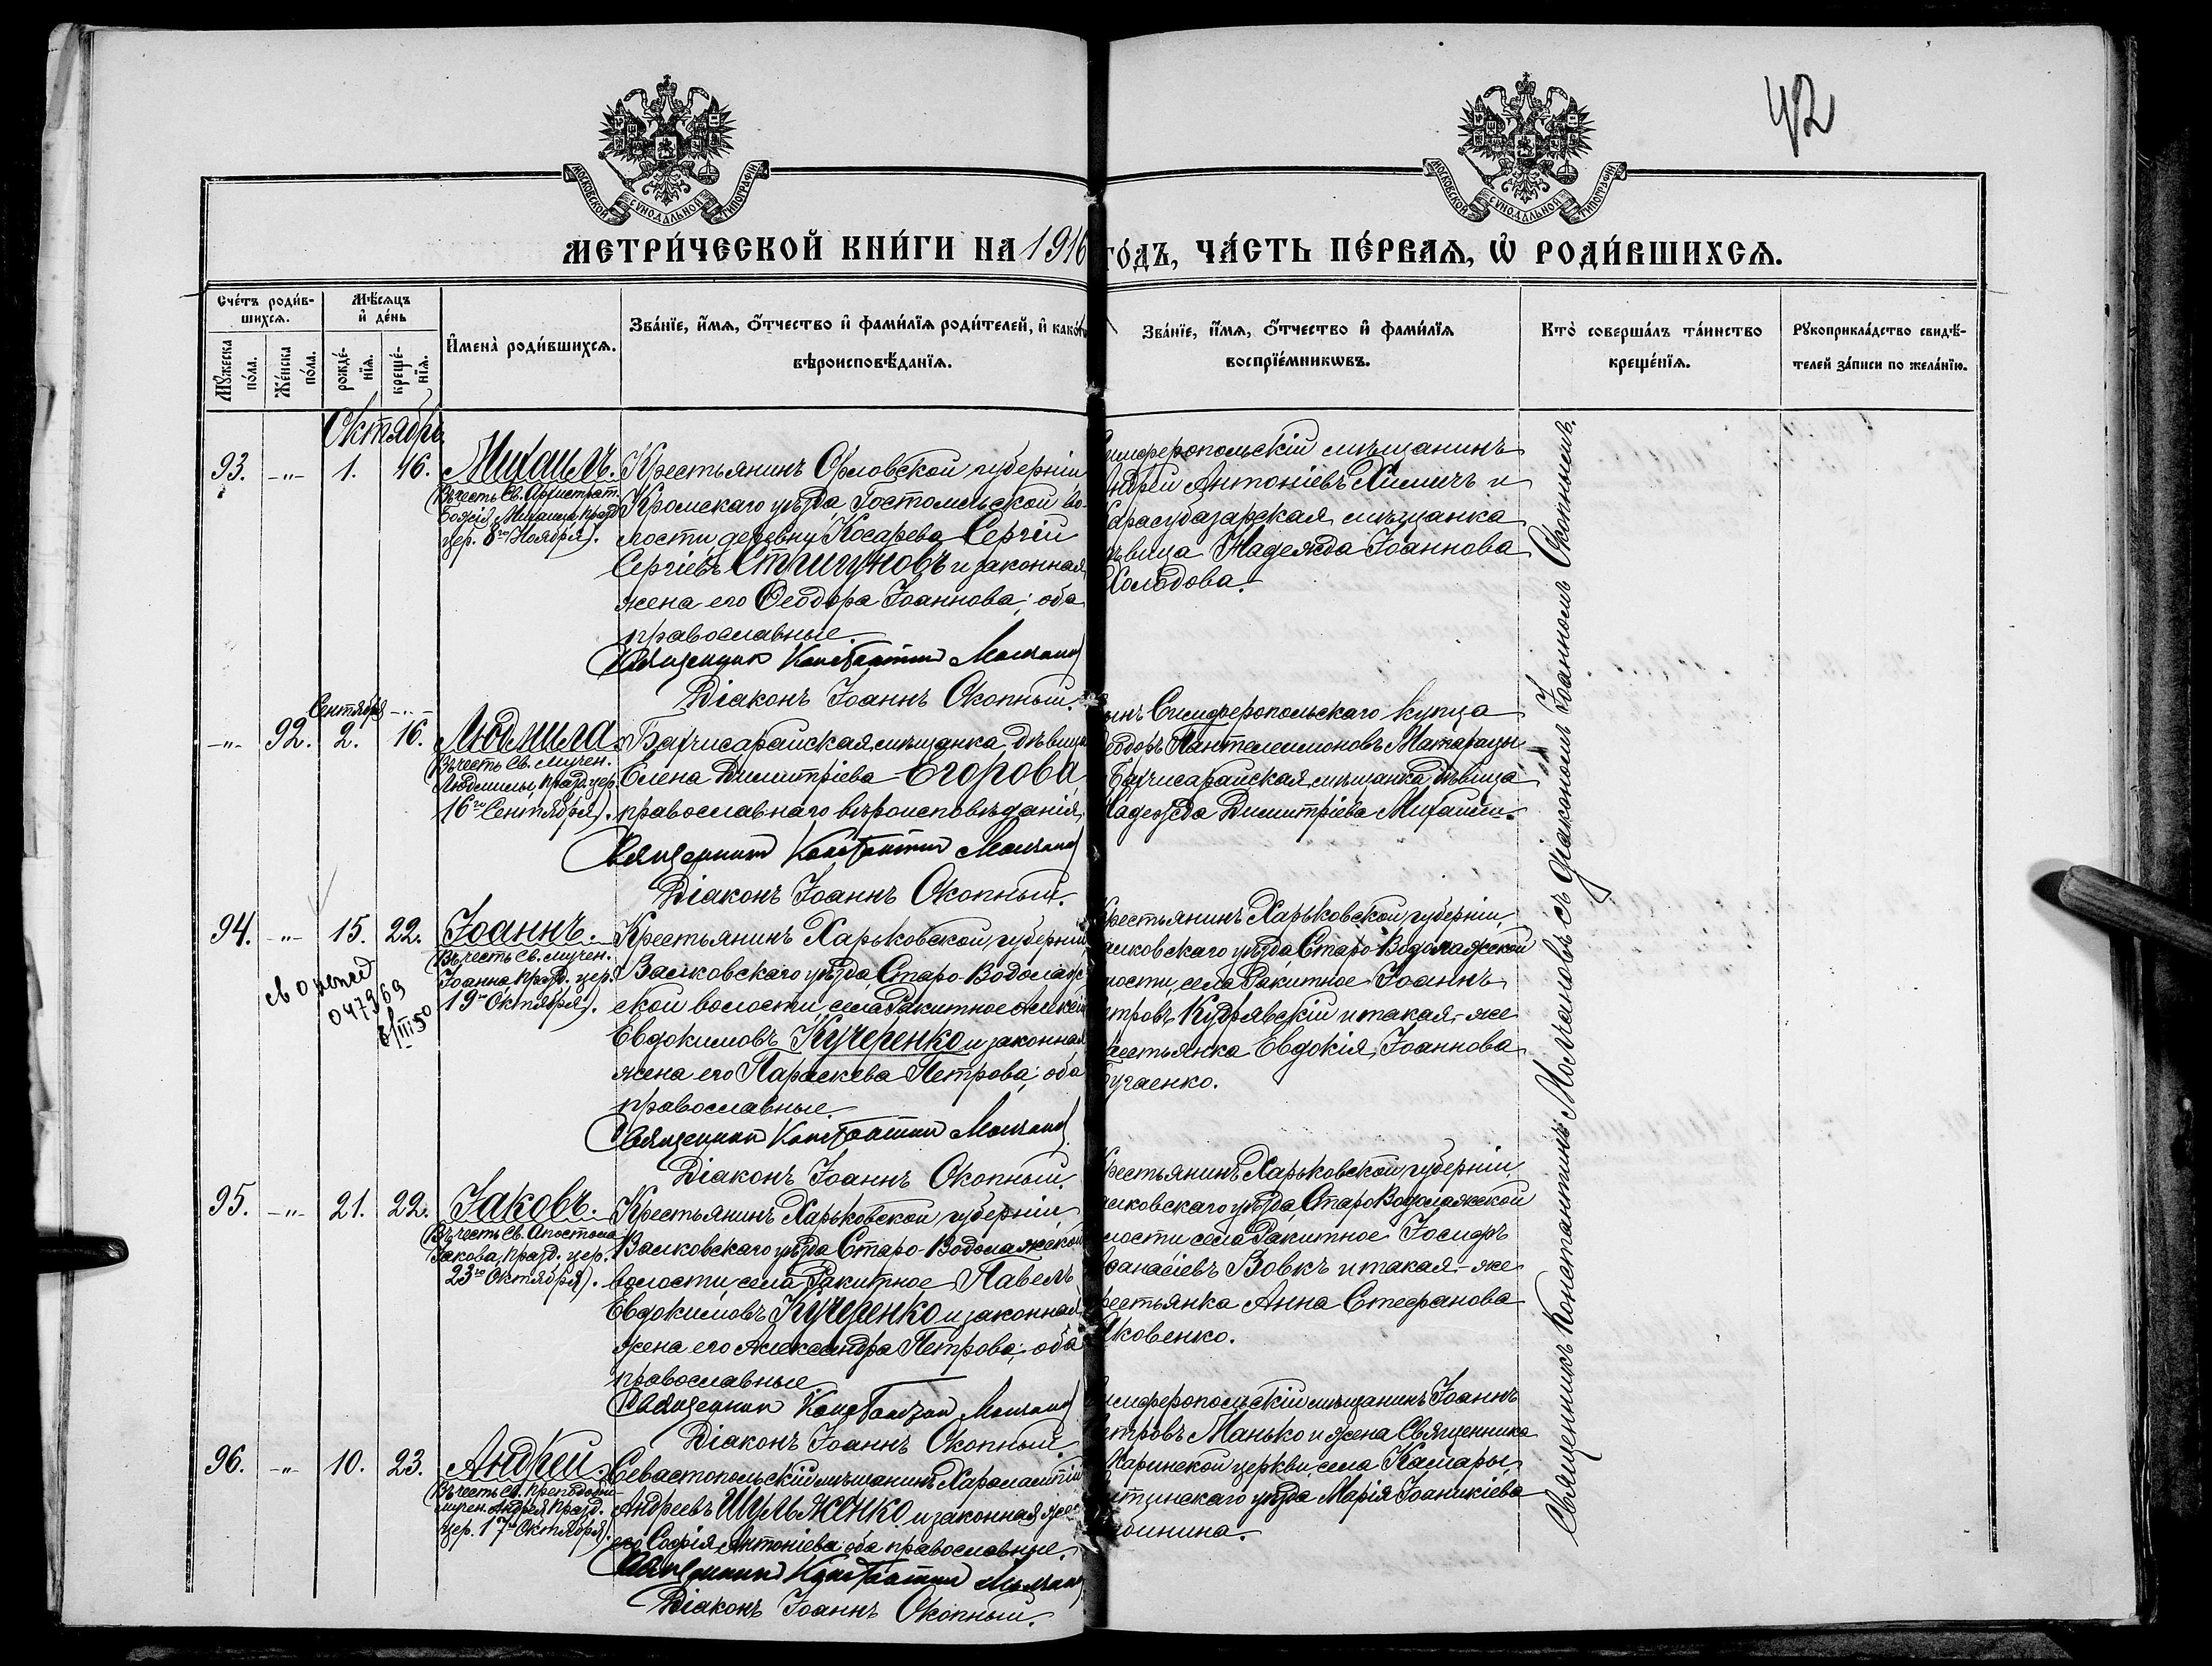 42
МОСКОВСКОЙ СУНОДАЛЬНОЙ ТИПОГРАФІИ
МОСКОВСКОЙ СУНОДАЛЬНОЙ ТИПОГРАФІИ
МЕТРИ́ЧЕСКОЙ КНИ́ГИ НА 1916
ГО́ДЪ, ЧА́СТЬ ПЕ́РВАѦ, Ѽ РОДИ́ВШИХСѦ.
Сче́тъ роди́в-
шихсѧ.
Мѣ́сѧцъ
и҆ де́нь
Мꙋ́жеска
по́ла.
Же́нска
по́ла.
рожде́-
нїѧ.
креще́-
нїѧ.
И҆мена̀ роди́вшихсѧ.
Зва́нїе, и҆́мѧ, ѻ҆́тчество и҆ фами́лїѧ роди́телей, и҆ како́гѡ
вѣроисповѣ́данїѧ.
Зва́нїе, и҆́мѧ, ѻ҆́тчество и҆ фами́лїѧ
воспрїе́мникѡвъ.
Кто̀ соверша́лъ та́инство
креще́нїѧ.
Рꙋкоприкла́дство свидѣ́-
телей за́писи по жела́нїю.
Октябрь
93. -"- 1. 16. Михаилъ.
(Въ честь Св. Архистрат.
Божія Михаила, празд.
цер. 8го Ноября).
Крестьянинъ Орловской губерніи
Кромскаго уѣзда, Гостомльской во-
лости деревни Косарева Сергій
Сергіевъ Стригуновъ и законная
жена его Ѳеодора Іоаннова; оба
православные.
Священник Константин Молчанов
Діаконъ Іоаннъ Окопный.
имферопольскій мѣщанинъ
ндрей Антоніевъ Химичъ и
арасубазарская мѣщанка
ѣвица Надежда Іоаннова
Холодова.
Сентябрь -"-
-"- 92. 2. 16. Людмила.
(Въ честь Св. мучен.
Людмилы, празд. цер.
16го Сентября).
Бахчисарайская мѣщанка дѣвица
Елена Димитріева Егорова,
православнаго вѣроисповѣданія.
Священник Константин Молчанов
Діаконъ Іоаннъ Окопный.
ынъ Симферопольскаго купца
еодоръ Пантелеимоновъ
Бахчисарайская мѣщанка дѣвица
Надежда Димитріева
94. -"- 15. 22. Іоаннъ.
(Въ честь Св. мучен.
Іоанна, празд. цер.
19го Октября).
св о
047969
6/III 50
Крестьянинъ Харьковской губерніи,
Валковскаго уѣзда, Старо-Водолаж-
ской волости, села Ракитное Алексій
Евдокимовъ Кучеренко и законная
жена его Параскева Петрова; оба
православные.
Священник Константин Молчанов
Діаконъ Іоаннъ Окопный.
рестьянинъ Харьковской губерніи,
алковскаго уѣзда, Старо-Водолажской
лости, села Ракитное Іоаннъ
етровъ Кудрявскій и такая-же
рестьянка Евдокія Іоаннова
угаенко.
95. -"- 21. 22. Іаковъ.
(Въ честь Св. Апостола
Іакова, празд. цер.
23го Октября).
Крестьянинъ Харьковской губерніи
Валковскаго уѣзда Старо-Водолажской
волости, села Ракитное Павелъ
Евдокимовъ Кучеренко и законная
жена его Александра Петрова; оба
православные
Священник Константин Молчанов
Діаконъ Іоаннъ Окопный.
рестьянинъ Харьковской губерніи
алковскаго уѣзда, Старо Водолажской
лости села Ракитное Іосифъ
ѳанасіевъ Вовкъ и такая-же
рестьянка Анна Стефанова
Яковенко.
96. -"- 10. 23. Андрей.
(Въ честь Св. преподобно-
мучен. Андрея, празд.
цер. 17го Октября).
Севастопольскій мѣщанинъ Харалампій
Андреевъ Шульженко и законная жена
его Софія Антоніева; оба православные.
Священник Константин Молчанов
Діаконъ Іоаннъ Окопный.
имферопольскій мѣщанинъ Іоаннъ
етровъ Манько и жена Священника
Маринской церкви, села Камары,
лтинскаго уѣзда Марія Іоаникіева
бинина.
Священникъ Константинъ Молчановъ съ діакономъ Іоанномъ Окопнымъ.